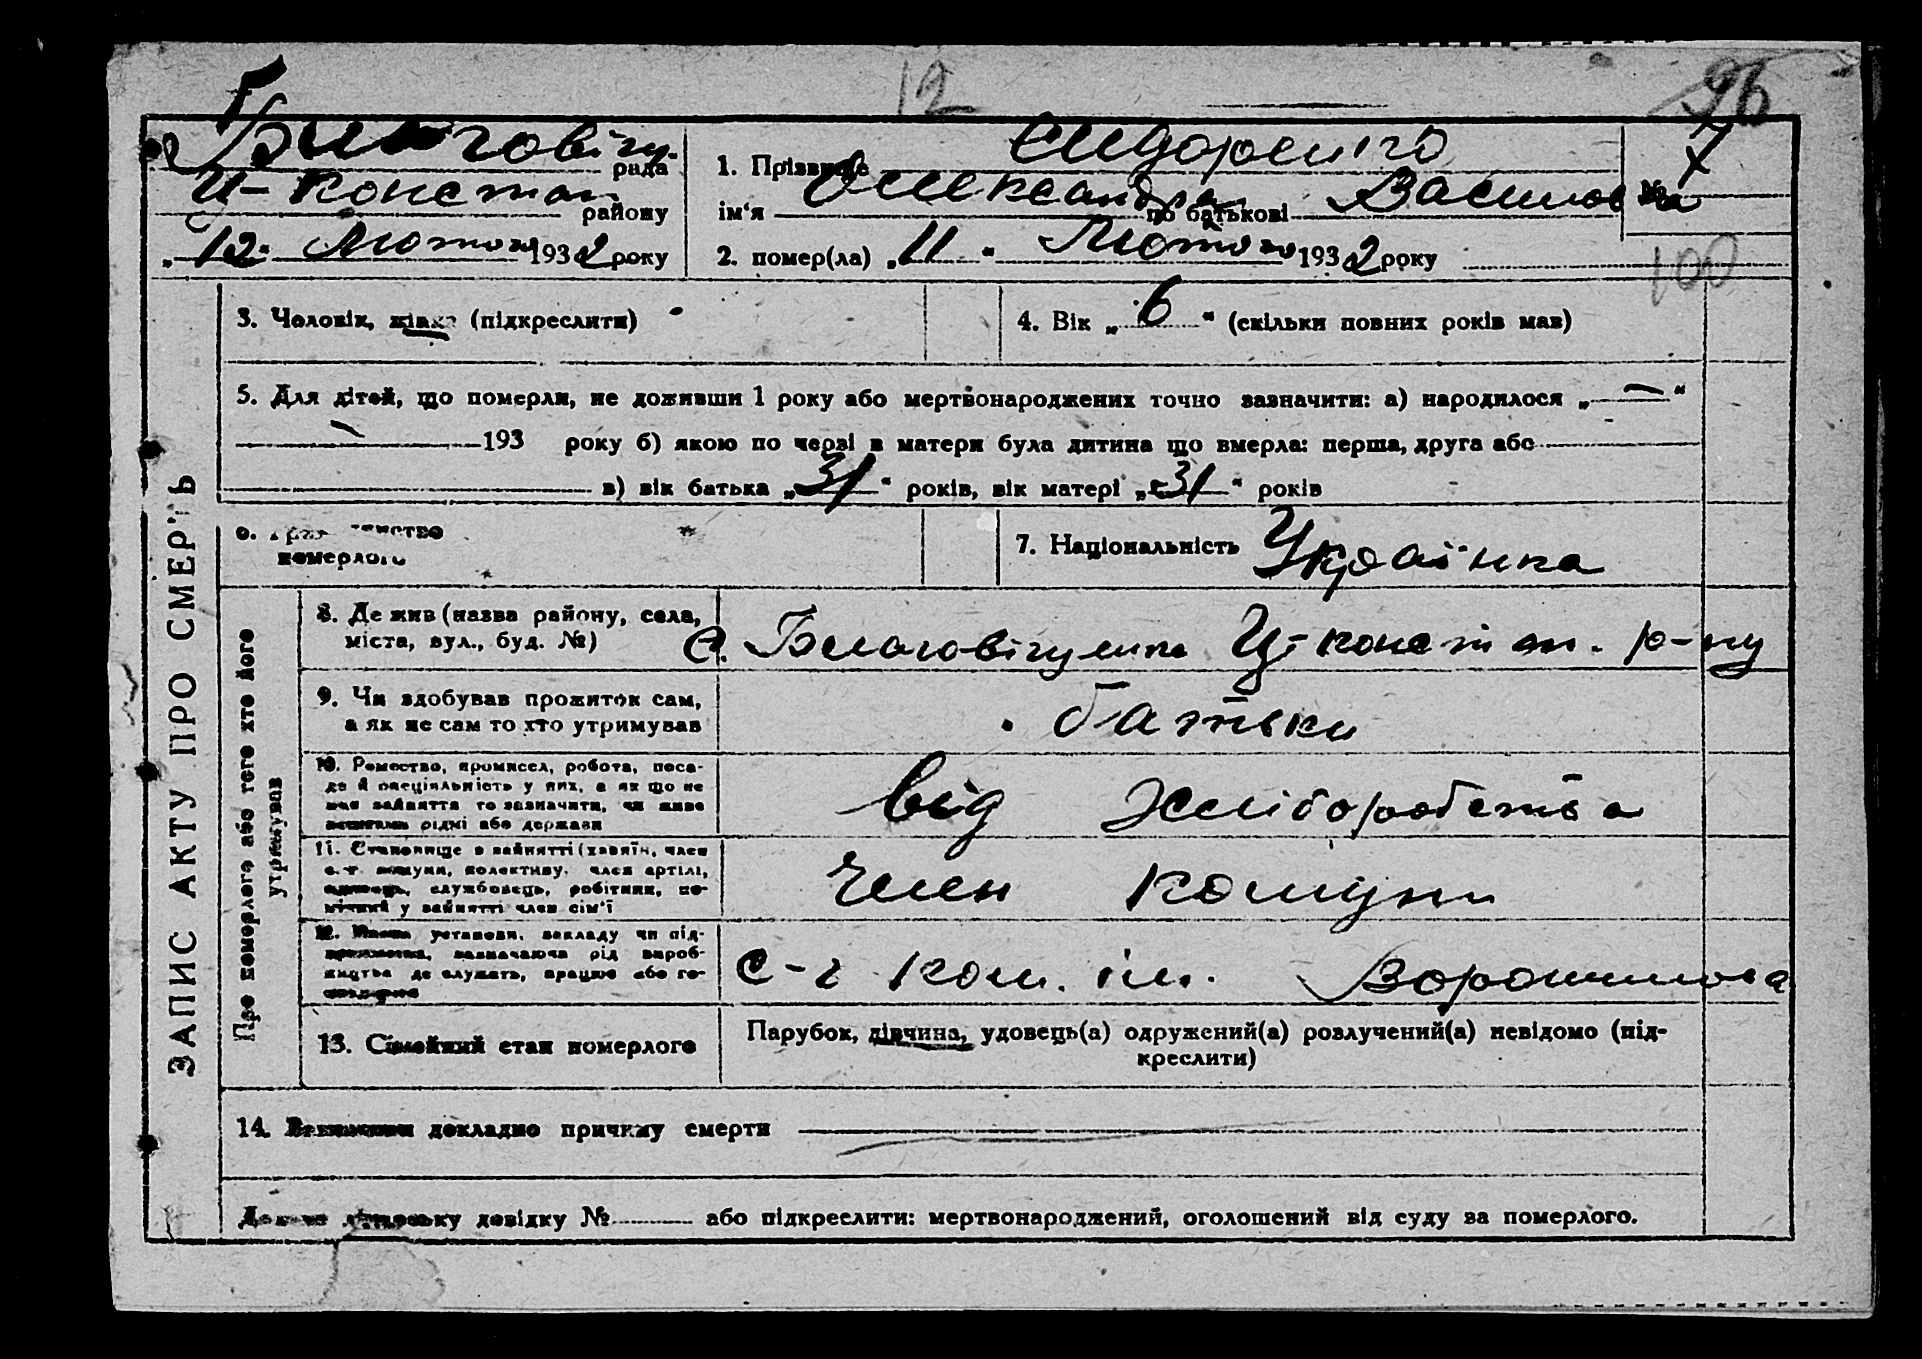 12
96
рада
району
"12" Лютого 1932 року
1. Прізвище Сидоренко
7
ім'я Олександра по батькові Василовна
2. помер(ла) "11" Лютого 1932 року
100
3. Чоловік, жінка (підкреслити)
4. Вік "6" (скільки повних років мав)
5. Для дітей, що померли, не доживши 1 року або мертвонароджених точно зазначити: а) народилося "—"
193 року б) якою по черзі в матери була дитина що вмерла: перша, друга або
в) вік батька "31" років, вік матері "31" років
6.
померлого
7. Національність Українка
ЗАПИС АКТУ ПРО СМЕРТЬ
Про померлого або того хто його
утримував
8. Де жив (назва району, села,
міста, вул., буд. №)
с. Ц-констан. р-ну
9. Чи здобував прожиток сам,
а як не сам то хто утримував
батьки
10. Ремество, промисел, робота, поса-
да й спеціяльність у них, а як що не
мав заняття то зазначити, чи живе
рідні або держави
від хліборобства
11. Становище в занятті (хазяїн, член
с.-г. комуни, колективу, член артілі,
службовець, робітник, по-
мічний у занятті член сім'ї
Член комуни
12. Назва установи, закладу чи під-
зазначаючи рід вироб-
ництва де служить, працює або го-
с-г ком. ім. Ворошилова
13. Сімейний стан померлого
Парубок, дівчина, удовець(а) одружений(а) розлучений(а) невідомо (під-
креслити)
14. докладно причину смерти
довідку № або підкреслити: мертвонароджений, оголошений від суду за померлого.